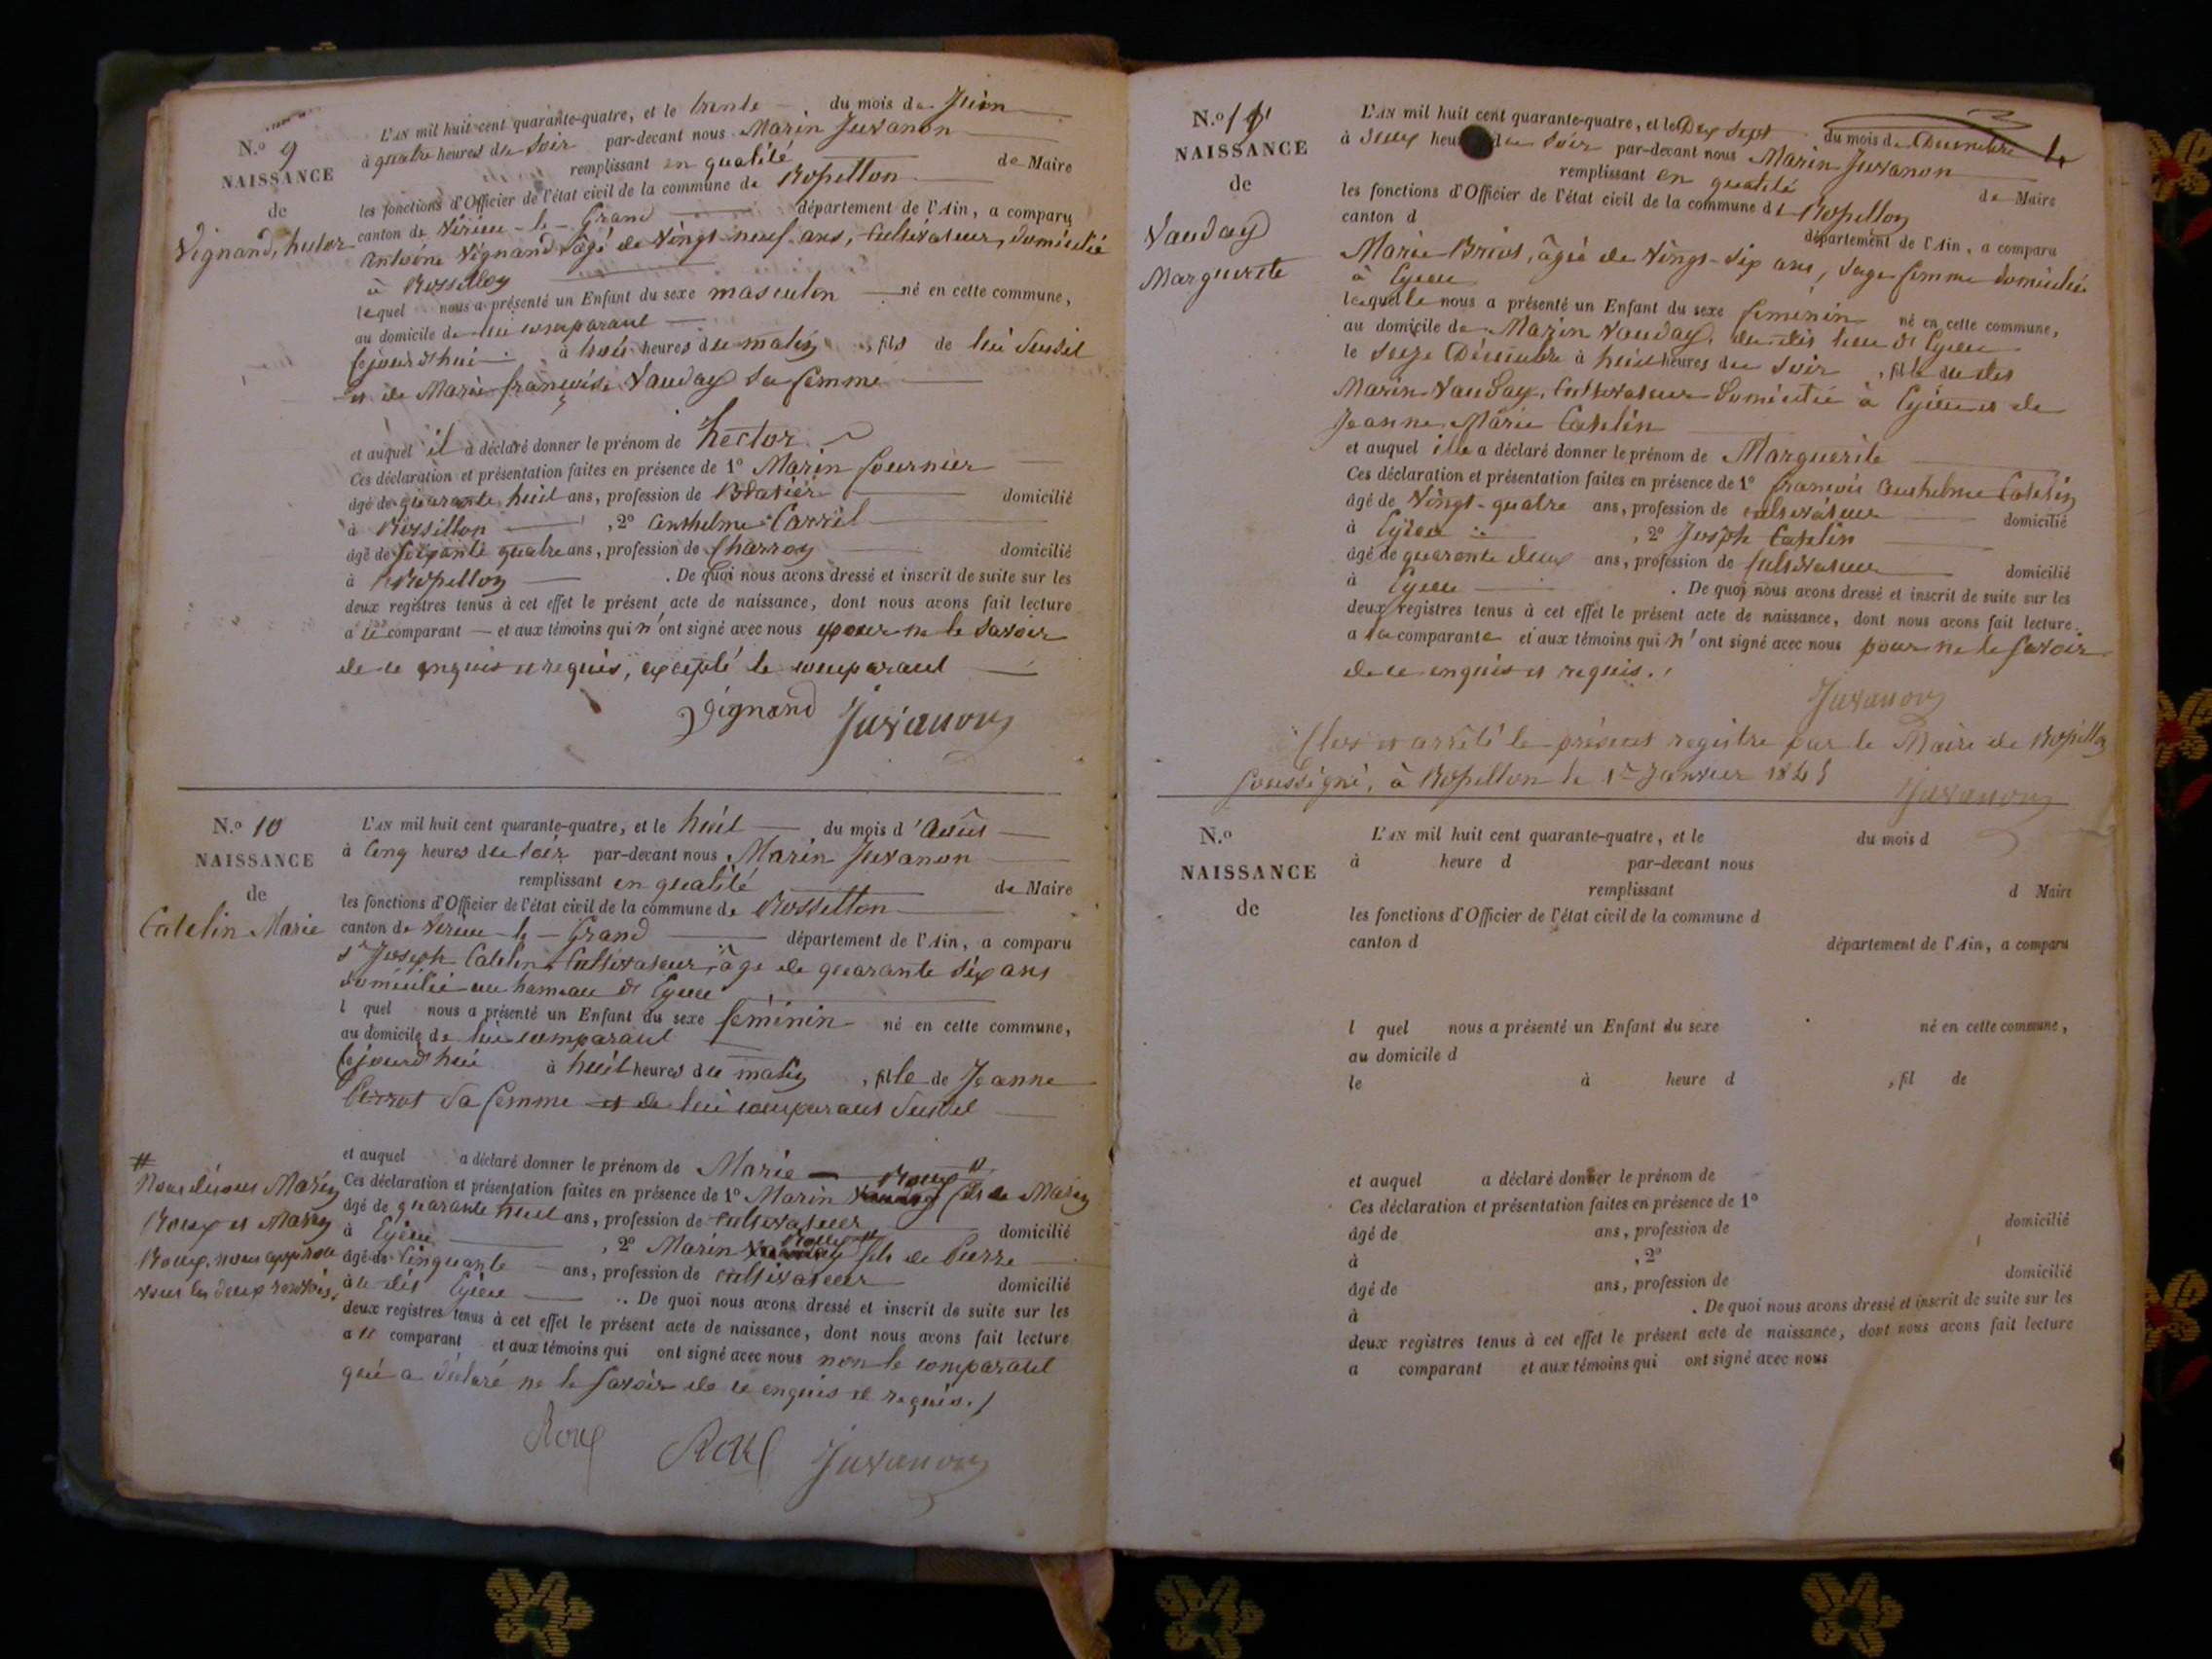 N.º 9
NAISSANCE
de
Vignand, hector
L'AN mil huit cent quarante-quatre, et le trente du mois de Juin
à quatre heures du soir par-devant nous Marin Juvanon
remplissant en qualité de Maire
les fonctions d'Officier de l'état civil de la commune de Rossillon
canton de Virieu-le-Grand département de l'Ain, a comparu
Antoine Vignand âgé de vingt-neuf ans, cultivateur, domicilié
à Rossillon
lequel nous a présenté un Enfant du sexe masculin né en cette commune,
au domicile de lui comparant
cejourd'hui à trois heures du matin, fils de lui susdit
et de Marie françoise Vauday sa femme
et auquel il a déclaré donner le prénom de hector
Ces déclaration et présentation faites en présence de 1º Marin fournier
âgé de quarante huit ans, profession de domicilié
à Rossillon, 2º Anthelme Carrel
âgé de soixante quatre ans, profession de Charron domicilié
à Rossillon. De quoi nous avons dressé et inscrit de suite sur les
deux registres tenus à cet effet le présent acte de naissance, dont nous avons fait lecture
a le comparant et aux témoins qui n'ont signé avec nous pour ne le savoir
de ce enquis et requis, excepté le comparant
Vignand Juvanon
N.º 10
NAISSANCE
de
Catelin Marie
L'AN mil huit cent quarante-quatre, et le huit du mois d'Août
à cinq heures du soir par-devant nous Marin Juvanon
remplissant en qualité de Maire
les fonctions d'Officier de l'état civil de la commune de Rossillon
canton de Virieu-le-Grand département de l'Ain, a comparu
sr Joseph Catelin, cultivateur, âgé de quarante six ans
domicilié au hameau d'Eyieu
l quel nous a présenté un Enfant du sexe féminin né en cette commune,
au domicile de lui comparant
cejourd'hui à huit heures du matin, fille de Jeanne
Perrot sa femme et de lui comparant susdit
et auquel a déclaré donner le prénom de Marie
Ces déclaration et présentation faites en présence de 1º Marin Roux fils de Marin
âgé de quarante huit ans, profession de cultivateur domicilié
à Eyieu, 2º Marin Roux fils de Pierre
âgé de Cinquante ans, profession de cultivateur domicilié
à le dit Eyieu. De quoi nous avons dressé et inscrit de suite sur les
deux registres tenus à cet effet le présent acte de naissance, dont nous avons fait lecture
a le comparant et aux témoins qui ont signé avec nous non le comparant
qui a déclaré ne le savoir de ce enquis et requis.
# Nous disons Marin
Roux et Marin
Roux, nous approu
vons les deux renvois.
Roux Roux Juvanon
N.º 11
NAISSANCE
de
Vauday
Marguerite
L'AN mil huit cent quarante-quatre, et le Dix sept du mois de Décembre
à deux heures du soir par-devant nous Marin Juvanon
remplissant en qualité de Maire
les fonctions d'Officier de l'état civil de la commune de Rossillon
canton d département de l'Ain, a comparu
Marie Brivot, âgée de vingt-six ans, sage femme domiciliée
à Eyieu
laquelle nous a présenté un Enfant du sexe féminin né en cette commune,
au domicile de Marin Vauday, du dit lieu d'Eyieu
le seize Décembre à huit heures du soir, fille du dit
Marin Vauday, cultivateur domicilié à Eyieu et de
Jeanne Marie Catelin
et auquel elle a déclaré donner le prénom de Marguerite
Ces déclaration et présentation faites en présence de 1º françois Anthelme Catelin
âgé de vingt-quatre ans, profession de cultivateur domicilié
à Eyieu, 2º Joseph Catelin
âgé de quarante deux ans, profession de cultivateur domicilié
à Eyieu. De quoi nous avons dressé et inscrit de suite sur les
deux registres tenus à cet effet le présent acte de naissance, dont nous avons fait lecture
a la comparante et aux témoins qui n'ont signé avec nous pour ne le savoir
de ce enquis et requis.
Juvanon
Clos et arrêté le présent registre par le Maire de Rossillon
soussigné, à Rossillon le 1er Janvier 1845
Juvanon
N.º
NAISSANCE
de
L'AN mil huit cent quarante-quatre, et le du mois d
à heure d par-devant nous
remplissant d Maire
les fonctions d'Officier de l'état civil de la commune d
canton d département de l'Ain, a comparu
l quel nous a présenté un Enfant du sexe né en cette commune,
au domicile d
le à heure d , fil de
et auquel a déclaré donner le prénom de
Ces déclaration et présentation faites en présence de 1º
âgé de ans, profession de domicilié
à , 2º
âgé de ans, profession de domicilié
à . De quoi nous avons dressé et inscrit de suite sur les
deux registres tenus à cet effet le présent acte de naissance, dont nous avons fait lecture
a comparant et aux témoins qui ont signé avec nous